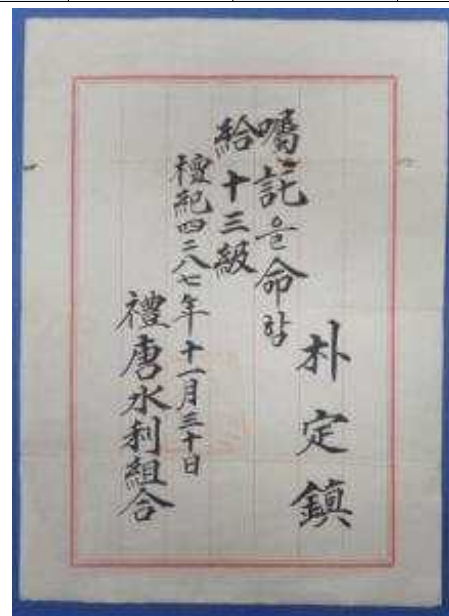 朴定鎮
囑託을命함
給十三級
檀紀四二八七年十一月三十日
禮唐水利組合